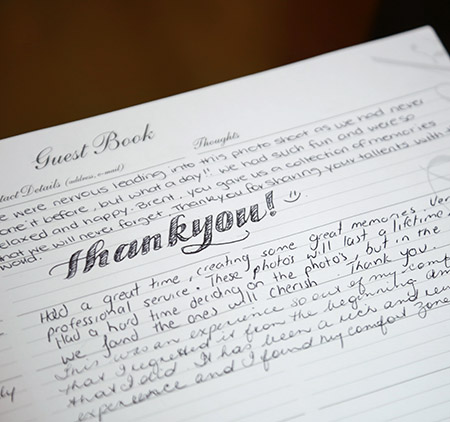 Guest Book
Thoughts
tact Details (address, e-mail)
e were nervous leading into this photo shoot as we had never
one it before, but what a day!! we had such fun and were so
elaxed and happy. Brent, you gave us a collection of memories
hat we will never forget. Thankyou for sharing your tallents with
world.
Thankyou!
Had a great time, creating some great memories. Ver
professional service. These photos will last a lifetime
Had a hard time deciding on the photo's, but in the
we fond the ones will cherish. Thank you.
This was an experience so out of my comf
that I regretted it from the beginning am
that I did. It has been a rich and
experience and I found my comfort zone